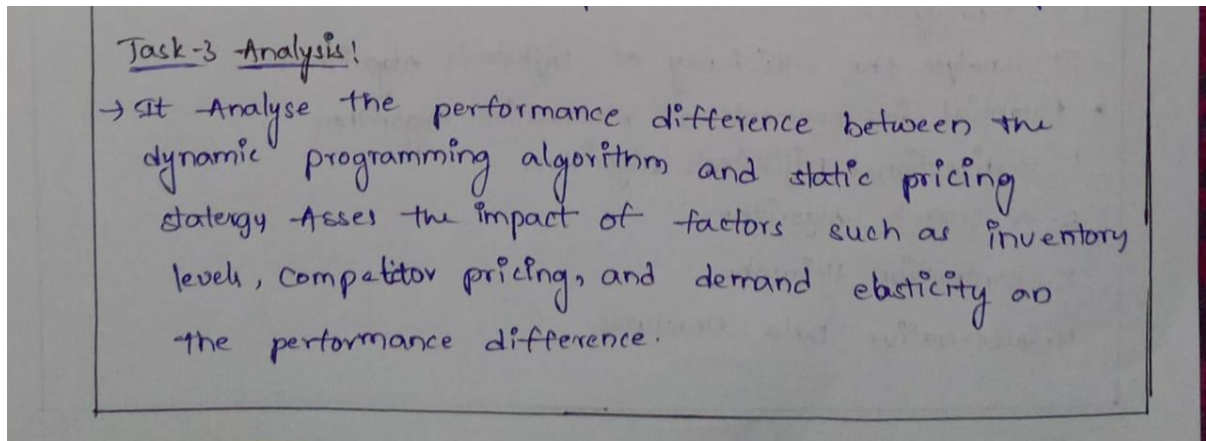 Task-3 Analysis!
→ It Analyse the performance difference between the
dynamic programming algorithm and static pricing
statergy Asses the impact of factors such as inventory
levels, competitor pricing, and demand elasticity on
the performance difference.